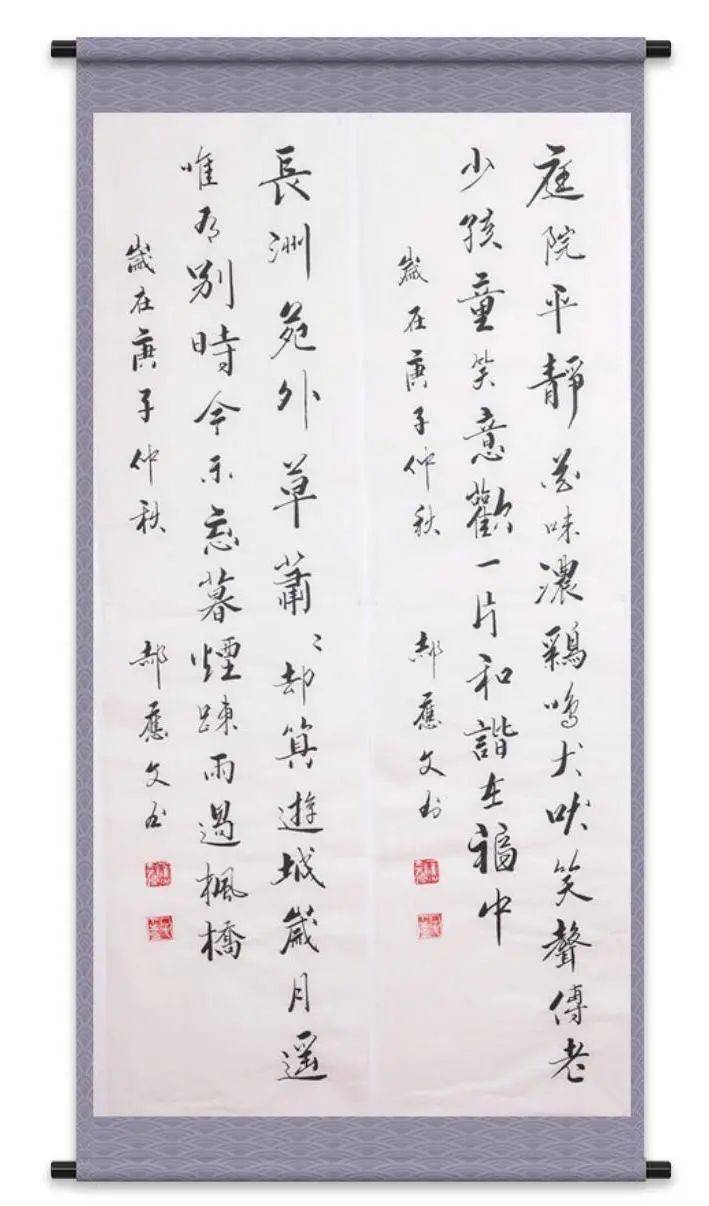 庭院平靜花味濃鷄鳴犬吠笑聲傳老
少孩童笑意歡一片和諧在福中
歲在庚子仲秋 郝應文書
長洲苑外草蕭〻却算遊城歲月遥
唯有別時今不忘暮煙踈雨過楓橋
歲在庚子仲秋 郝應文書